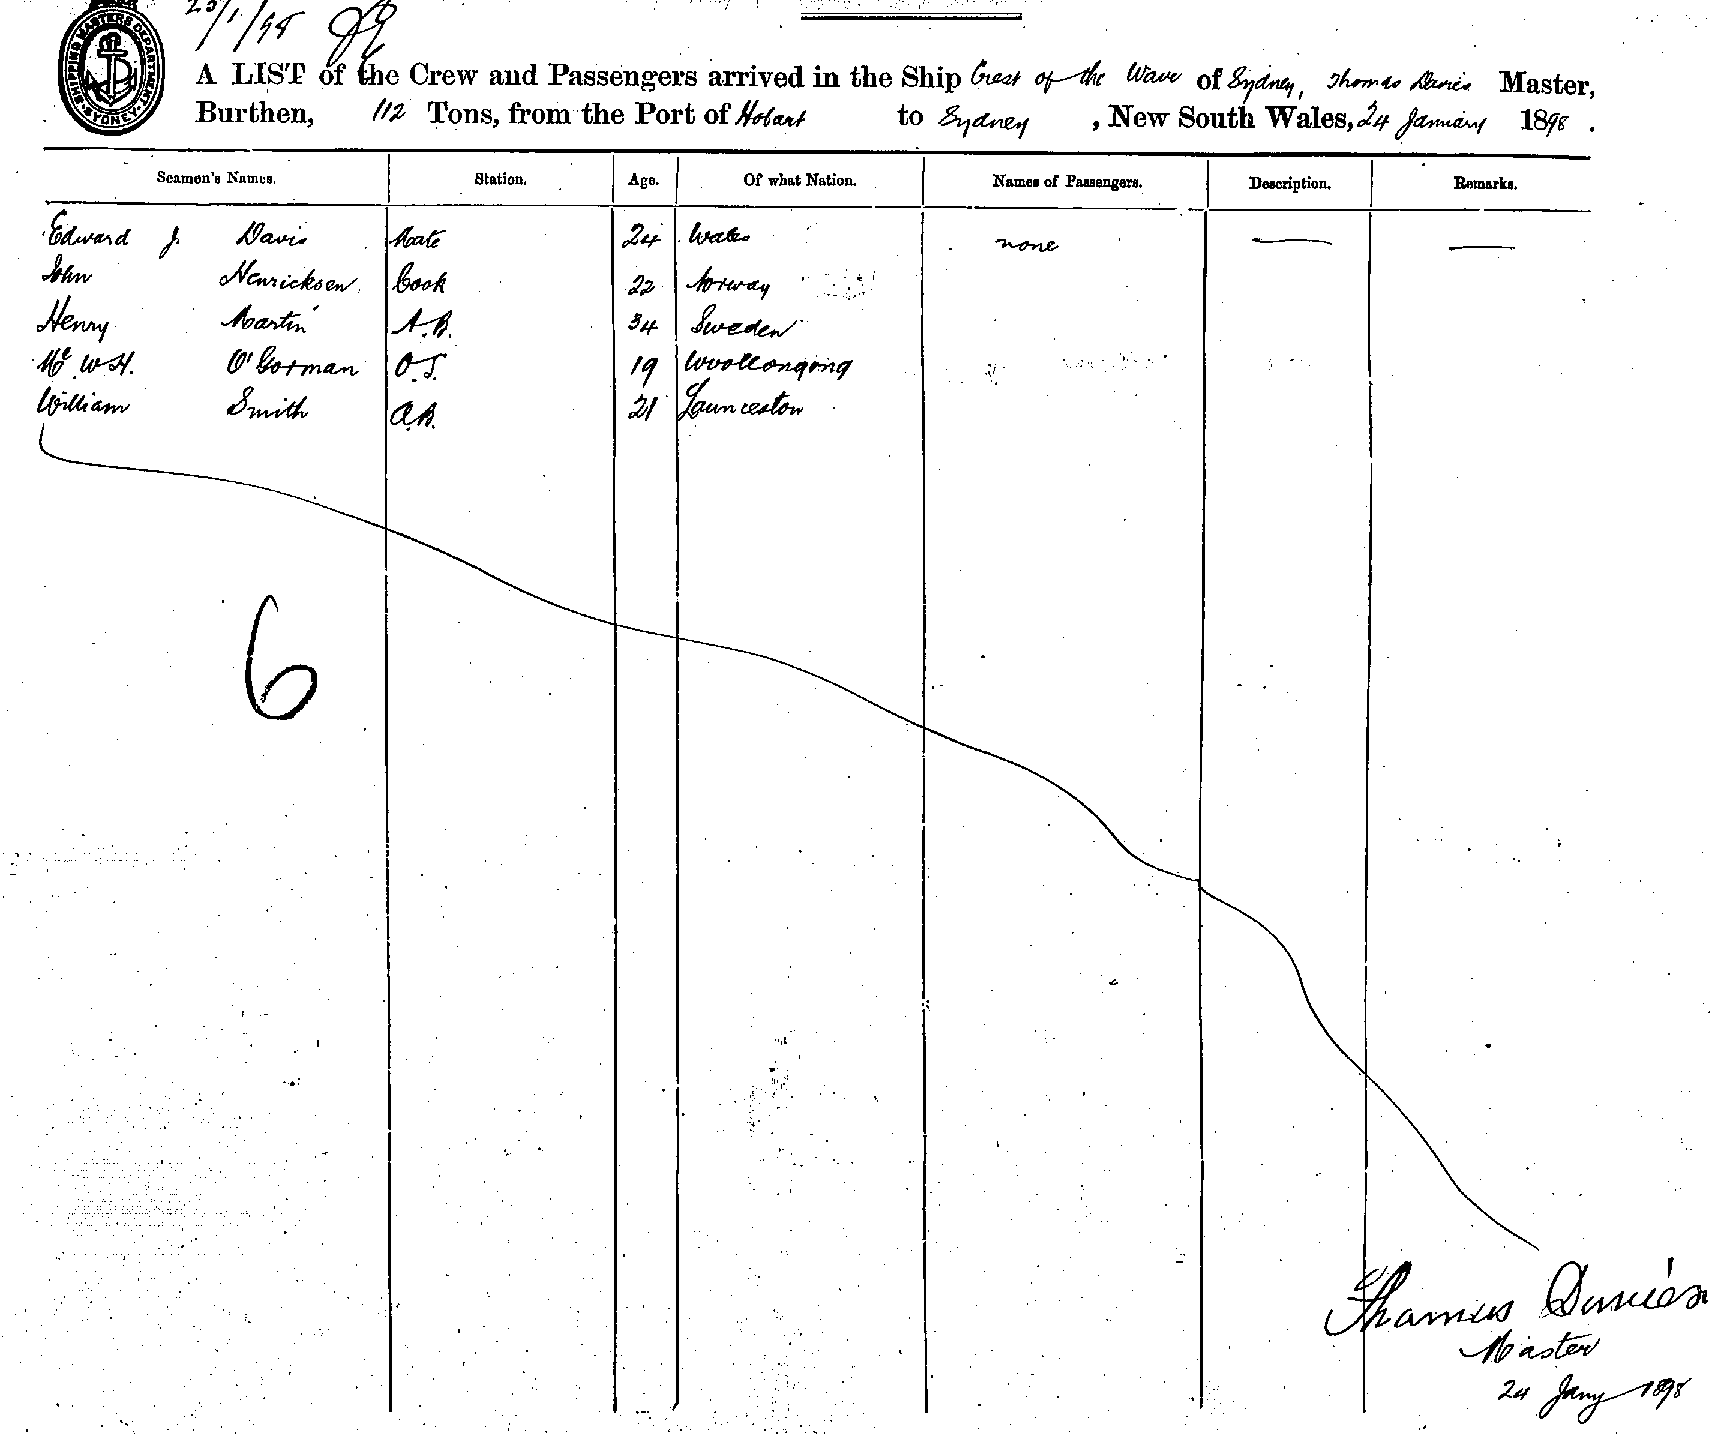 25/1/98
SHIPPING MASTERS DEPARTMENT SYDNEY
A LIST of the Crew and Passengers arrived in the Ship Crest of the Wave of Sydney, Thomas Davies Master,
Burthen, 112 Tons, from the Port of Hobart to Sydney, New South Wales, 24 January 1898.
Seamen's Names. Station. Age. Of what Nation. Names of Passengers. Description. Remarks.
Edward J. Davis Mate 24 Wales none
John Henricksen Cook 22 Norway
Henry Martin A.B. 34 Sweden
W.H. O'Gorman O.S. 19 Woollongong
William Smith A.B. 21 Launceston
6
Thomas Davies
Master
24 Jany 1898